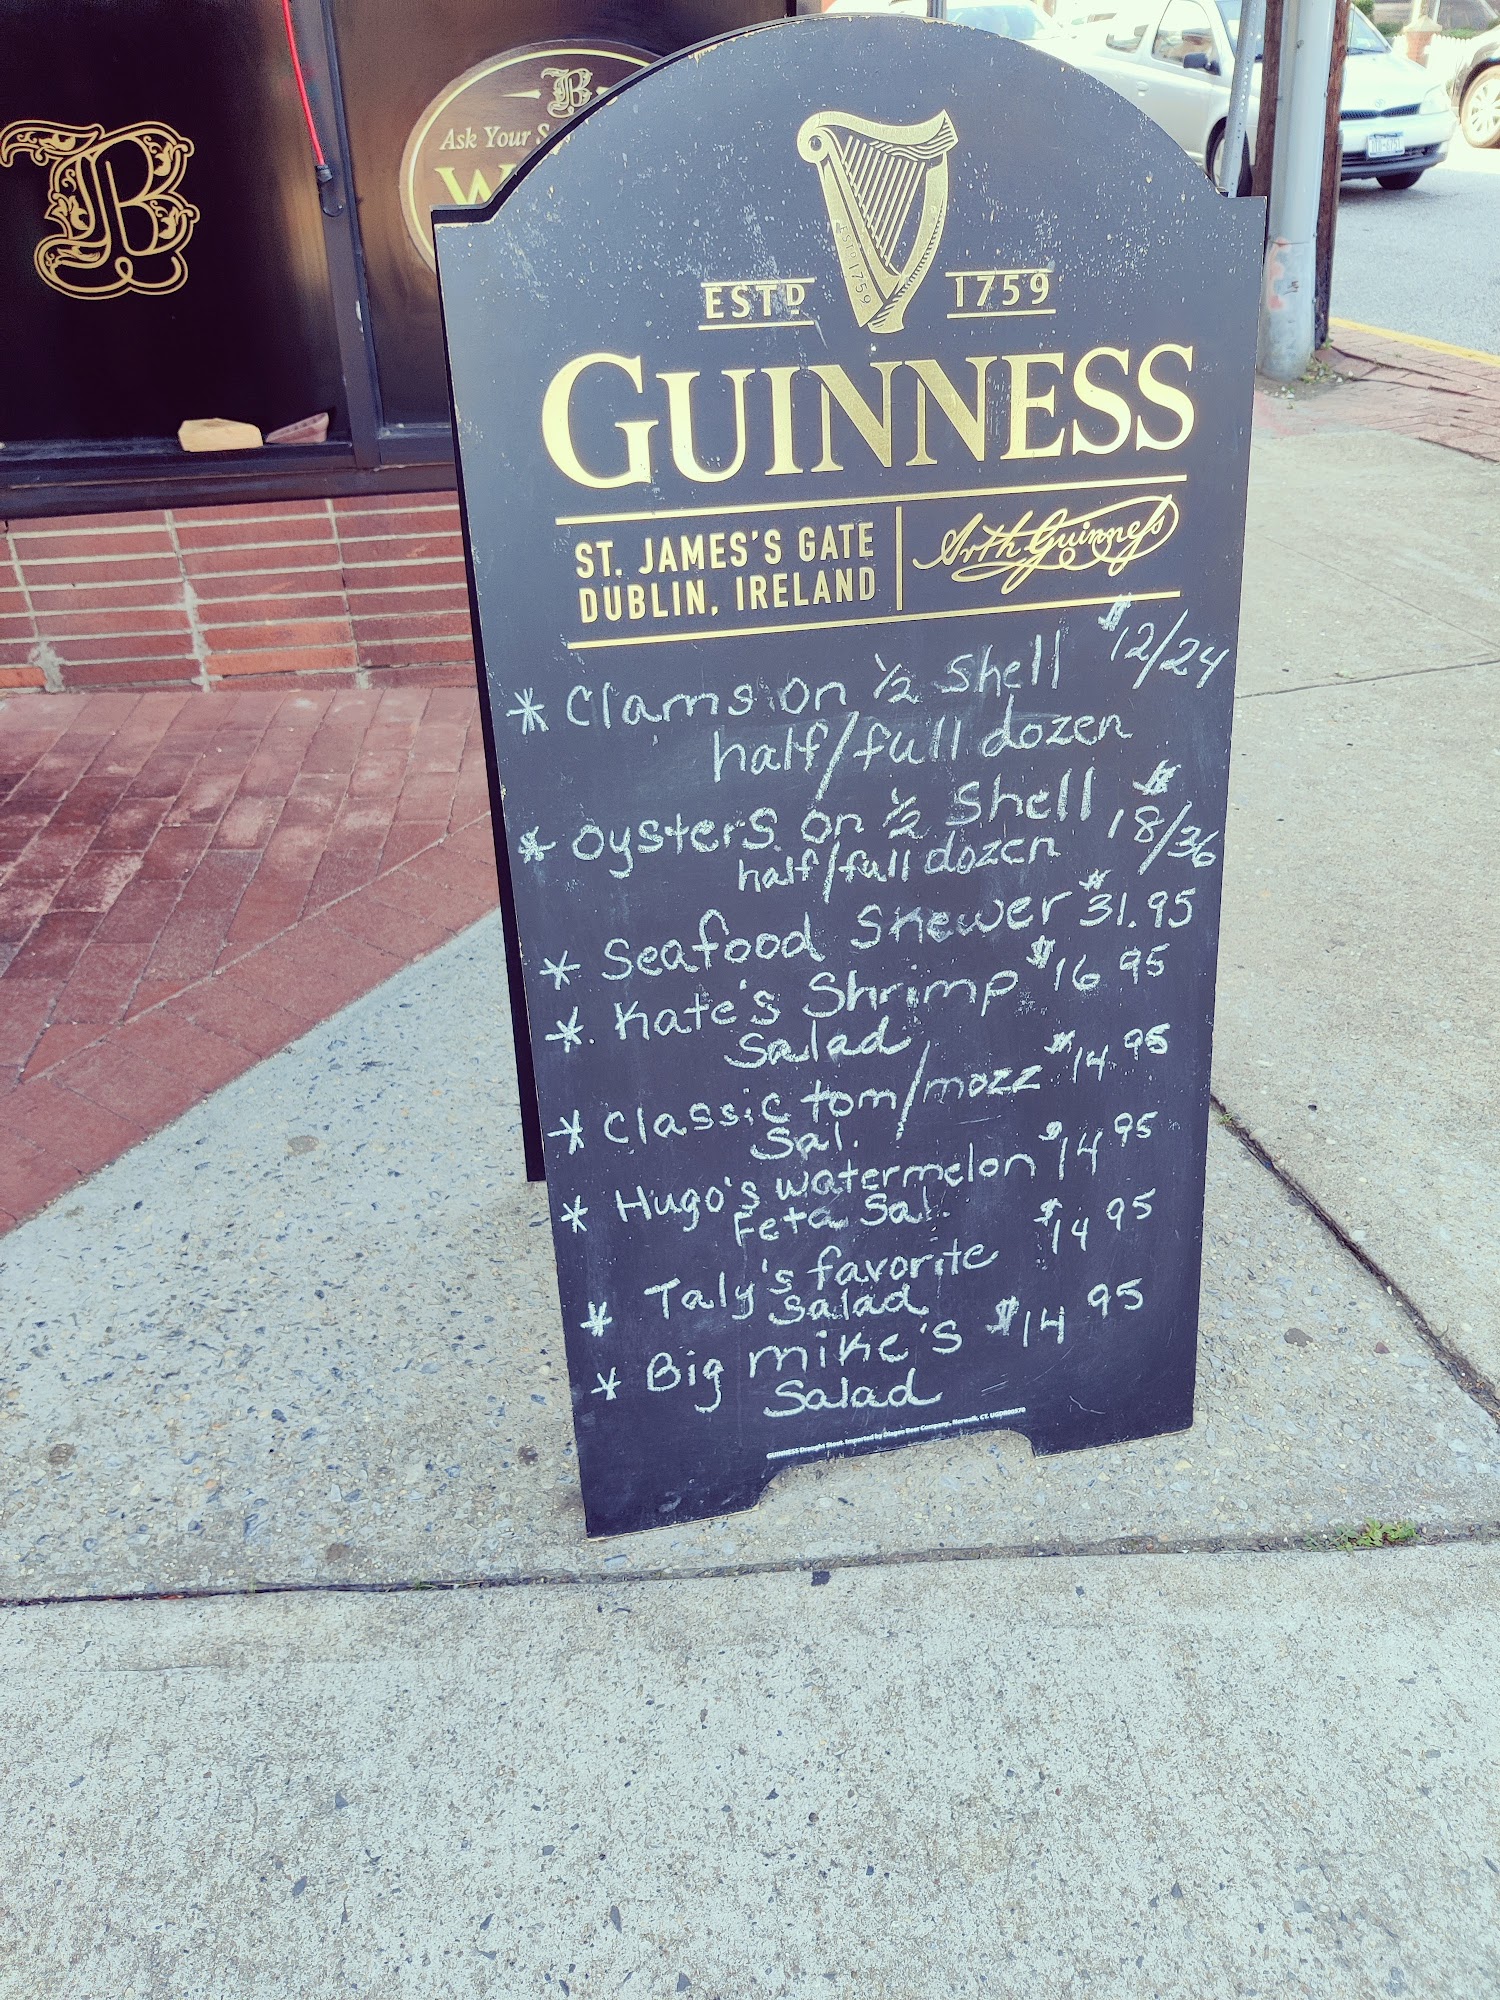 B
B
Ask Your
ESTD 1759
GUINNESS
ST. JAMES'S GATE
DUBLIN, IRELAND
Arth Guinness
* Clams on 1/2 Shell $12/24
half/full dozen
* Oysters on 1/2 Shell $18/36
half/full dozen
* Seafood Skewer $31.95
* Kate's Shrimp $16 95
Salad
* Classic tom/mozz $14 95
Sal.
* Hugo's watermelon $14 95
Feta Sal.
* Taly's favorite $14 95
Salad
* Big mike's $14 95
Salad
GUINNESS Draught Stout. Imported by Diageo Beer Company, Norwalk, CT.